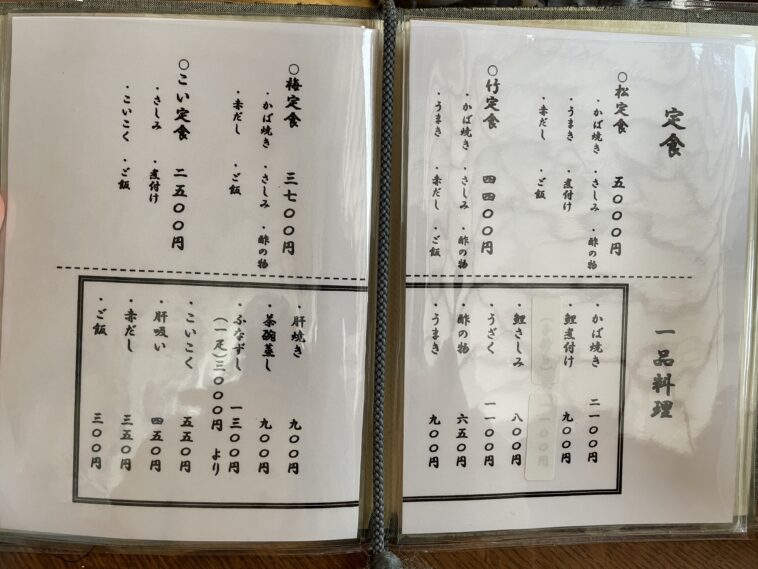 定食
○松定食 五〇〇〇円
・かば焼き ・さしみ ・酢の物
・うまき ・煮付け
・赤だし ・ご飯
○竹定食 四四〇〇円
・かば焼き ・さしみ ・酢の物
・うまき ・赤だし ・ご飯
○梅定食 三七〇〇円
・かば焼き ・さしみ ・酢の物
・赤だし ・ご飯
○こい定食 二五〇〇円
・さしみ ・煮付け
・こいこく ・ご飯
一品料理
・かば焼き 二一〇〇円
・鯉煮付け 九〇〇円
・鯉さしみ 八〇〇円
・うざく 一一〇〇円
・酢の物 六五〇円
・うまき 九〇〇円
・肝焼き 九〇〇円
・茶碗蒸し 九〇〇円
・ふなずし 一三〇〇円
(一疋)三〇〇〇円 より
・こいこく 五五〇円
・肝吸い 四五〇円
・赤だし 三五〇円
・ご飯 三〇〇円